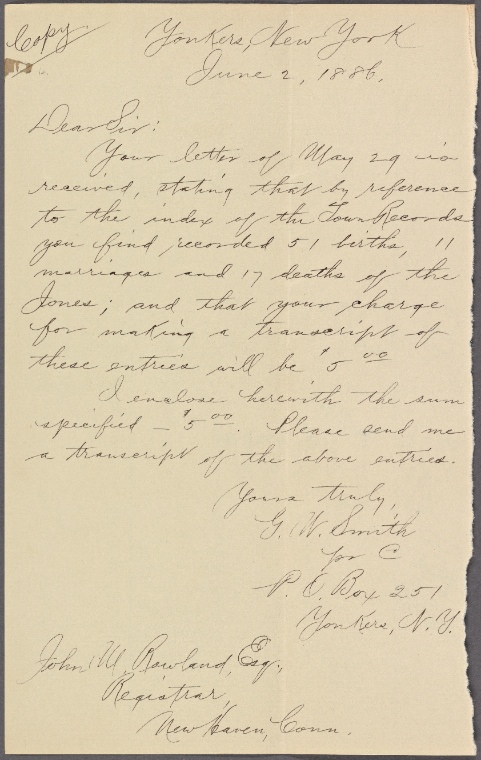 Copy
Yonkers, New York
June 2, 1886.
Dear Sir:
Your letter of May 29 is
received, stating that by reference
to the index of the Town Records
you find recorded 51 births, 11
marriages and 17 deaths of the
Jones; and that your charge
for making a transcript of
these entries will be $5 00
I enclose herewith the sum
specified - $5 00. Please send me
a transcript of the above entries.
Yours truly,
G. W. Smith
per C
P. O. Box 251
Yonkers, N. Y.
John W. Rowland, Esq.,
Registrar,
New Haven, Conn.